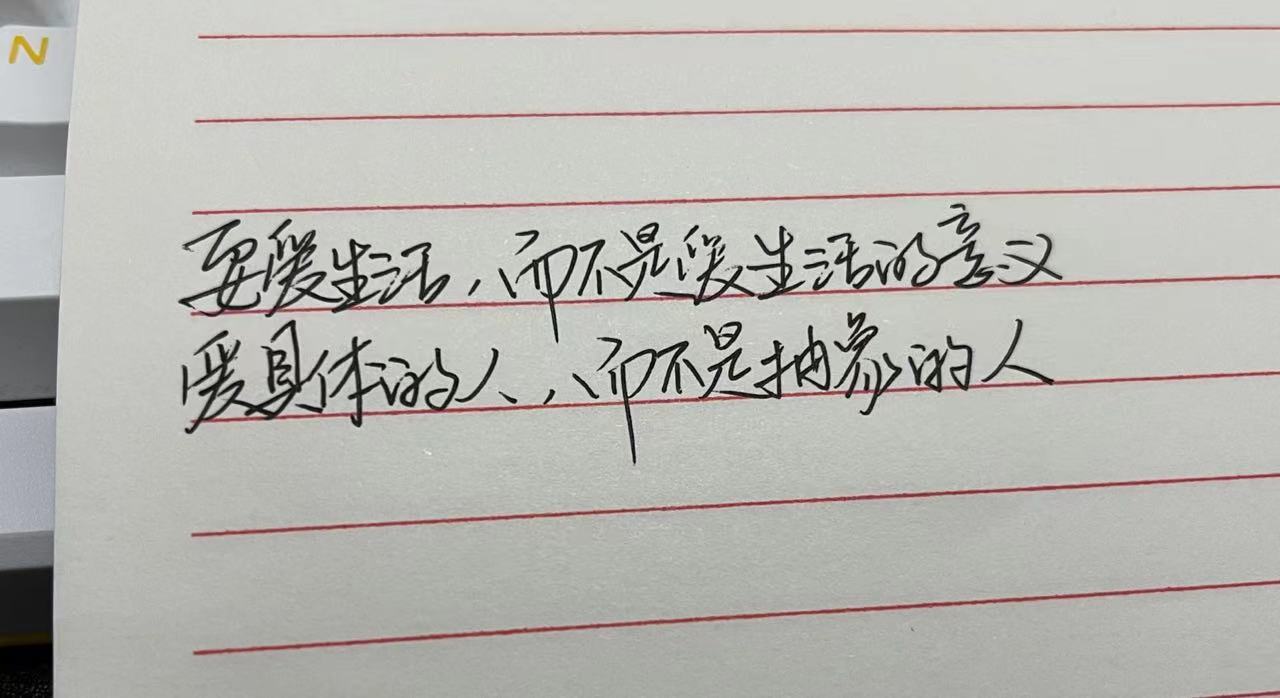 N
要爱生活，而不是爱生活的意义
爱具体的人，而不是抽象的人